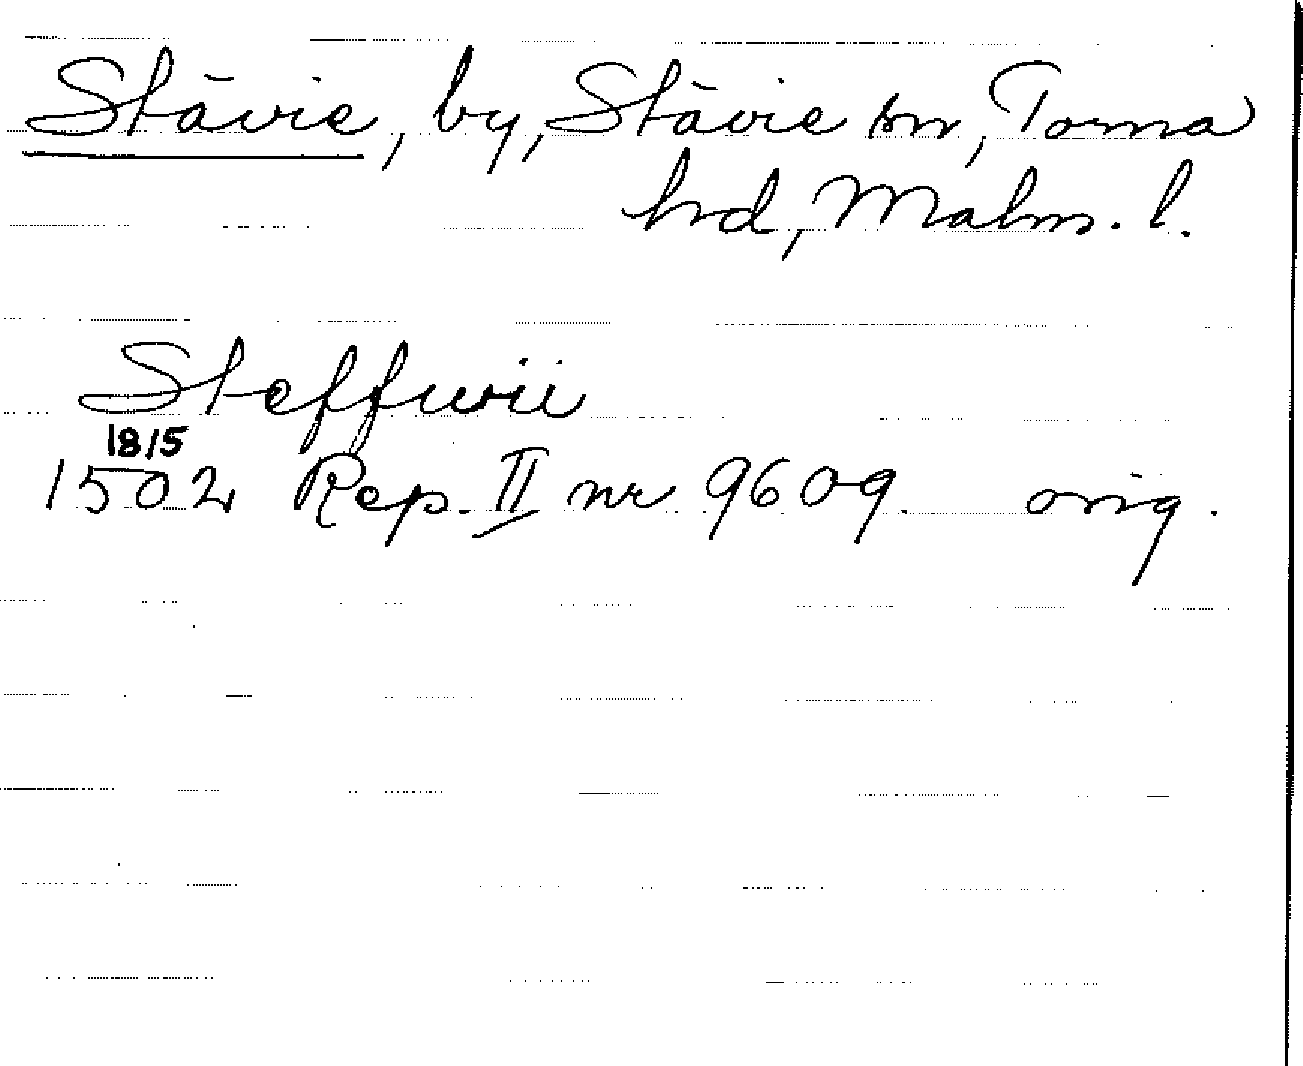 Stävie, by, Stävie sn, Torna
hd, Malm. l.
Steffwii
18/5
1502 Rep. II nr 9609. orig.